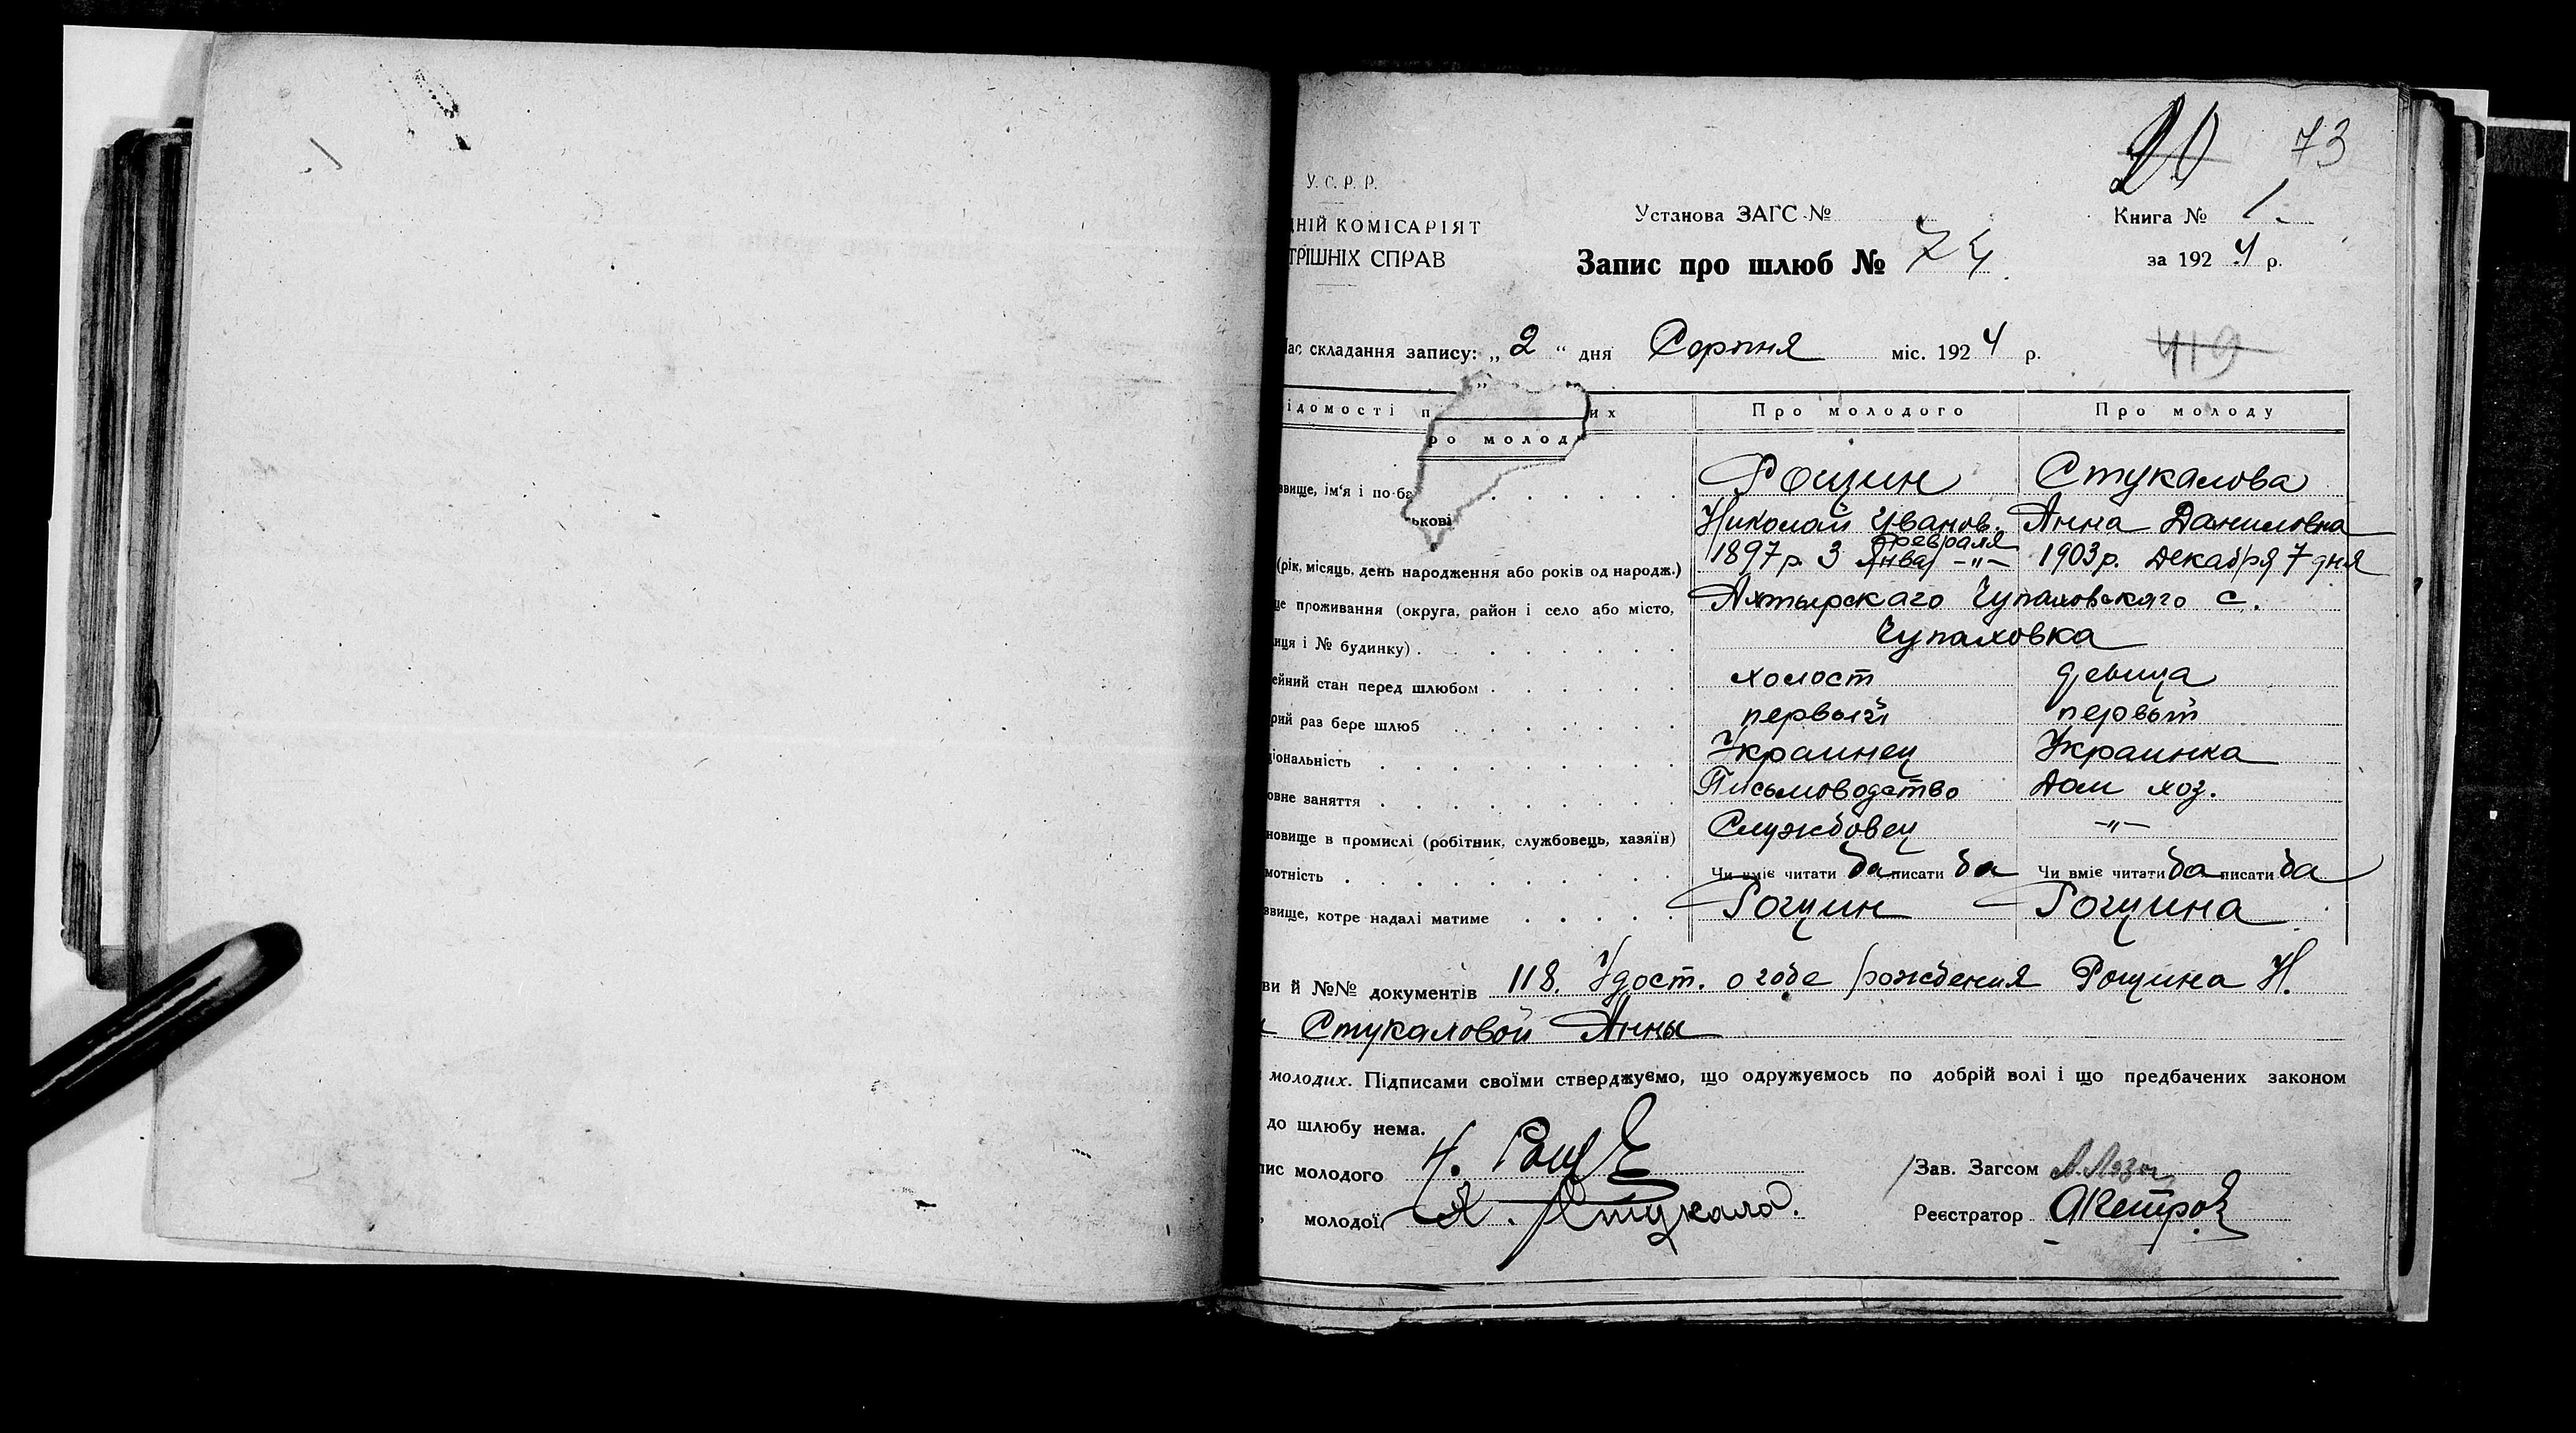 73
У.С.Р.Р.
ДНІЙ КОМІСАРІЯТ
ТРІШНІХ СПРАВ
Установа ЗАГС №
Книга № 1.
Запис про шлюб № 74.
за 1924 р.
Час складання запису: „2“ дня Серпня міс. 1924 р.
419
ідомості п их
Про молодого
Про молоду
ро молод
звище, ім'я і по-ба
ькові
Рощин
Стукалова
Николай Иванов.
Анна Даниловна
(рік, місяць, день народження або років од народж.)
февраля
1897 р. 3 Январ -„-
1903 р. Декабря 7 дня
це проживання (округа, район і село або місто,
Ахтырскаго Чупаховскаго с.
иця і № будинку)
Чупаховка
ейний стан перед шлюбом
холост
девица
рий раз бере шлюб
первый
первый
ціональність
Украинец
Украинка
овне заняття
Письмоводство
Дом хоз.
новище в промислі (робітник, службовець, хазяїн)
Службовец
-„-
мотність
Чи вміє читати да писати да
Чи вміє читати да писати да
звище, котре надалі матиме
Рощин
Рощина
ви й №№ документів 118. Удост. о годе рождения Рощина Н.
и Стукаловой Анны
молодих. Підписами своїми стверджуємо, що одружуємось по добрій волі і що предбачених законом
до шлюбу нема.
пис молодого Н. Рощ
Зав. Загсом
„ молодої А. Стукало.
Реєстратор